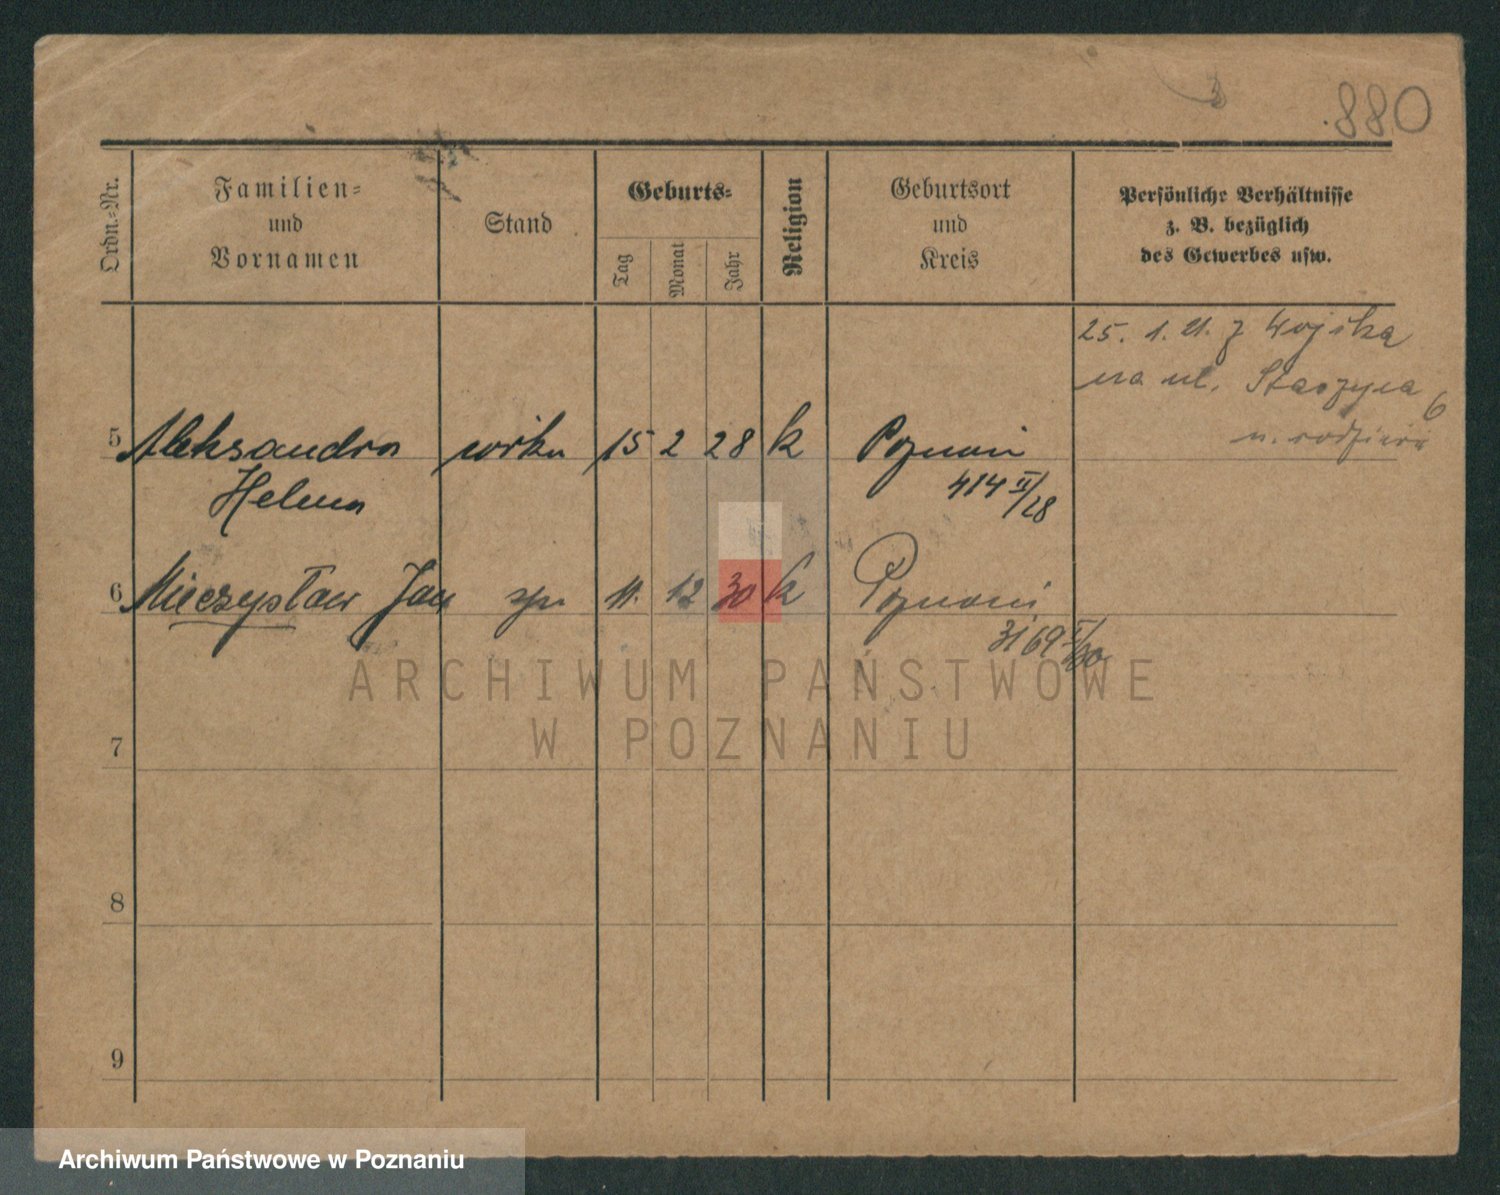 880
Ordn.=Nr.
Familien=
und
Vornamen
Stand
Geburts=
Tag
Monat
Jahr
Religion
Geburtsort
und
Kreis
Persönliche Verhältnisse
z. B. bezüglich
des Gewerbes usw.
25. 1. 21. z Wojska
na ul. Staszyca 6
5 Aleksandra córka 15 2 28 k Poznań
Helena 414 II/28
6 Mieczysław Jan syn 11. 12 30 k Poznań
3169
ARCHIWUM PAŃSTWOWE
W POZNANIU
7
8
9
Archiwum Państwowe w Poznaniu